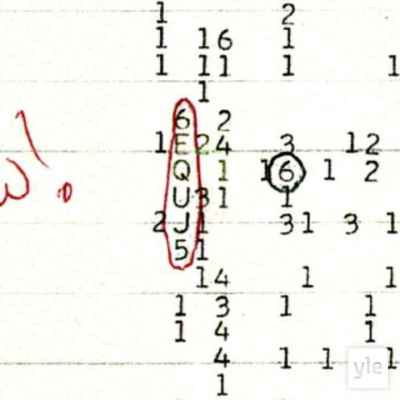 1 2
1 16 1
1 11 1 1
1
6 2
1 E 24 3 12
Q 1 16 1 2
U 31 1
2 J 1 31 3 1
5 1
14 1 1
1 3 1 1
1 4 1
4 1 1 1
1
w!
yle